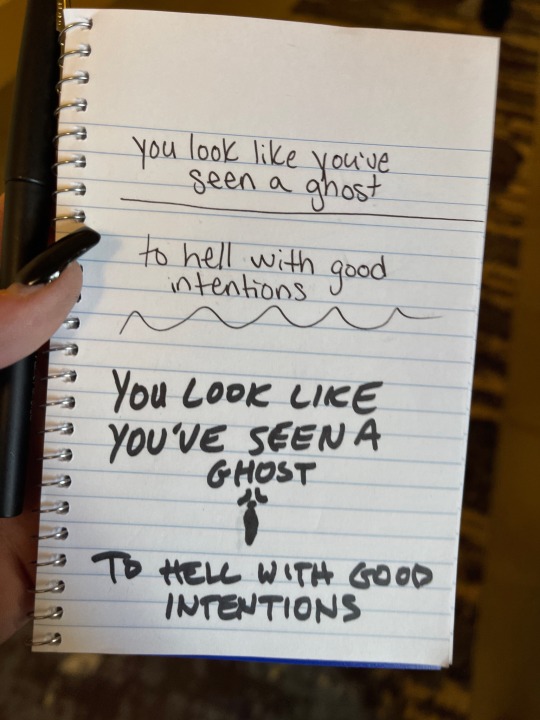 you look like you've
seen a ghost
to hell with good
intentions
YOU LOOK LIKE
YOU'VE SEEN A
GHOST
TO HELL WITH GOOD
INTENTIONS